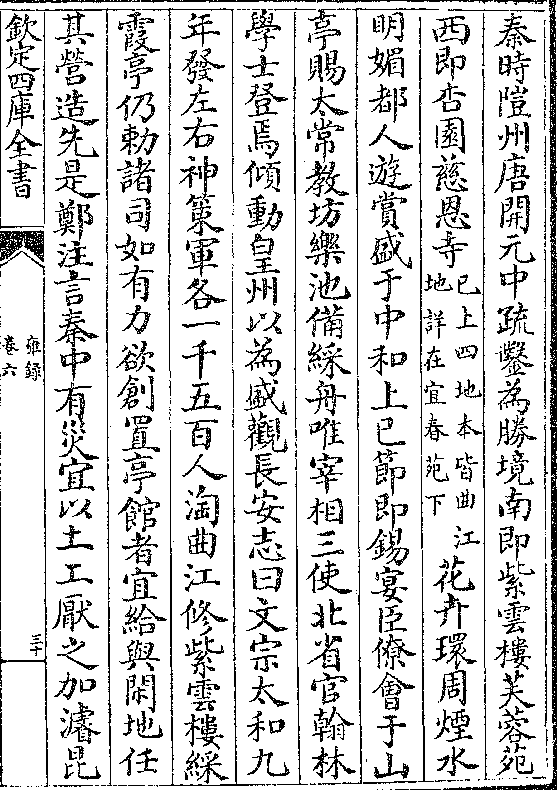 秦時隑州唐開元中疏鑿為勝境南即紫雲樓芙蓉苑
西即杏園慈恩寺已上四地本皆曲江地詳在宜春苑下花卉環周煙水
明媚都人遊賞盛于中和上巳節即錫宴臣僚會于山
亭賜太常教坊樂池備綵舟唯宰相三使北省官翰林
學士登焉傾動皇州以為盛觀長安志曰文宗太和九
年發左右神策軍各一千五百人淘曲江修紫雲樓綵
霞亭仍勅諸司如有力欲創置亭館者宜給與閑地任
其營造先是鄭注言秦中有災宜以土工厭之加濬昆
欽定四庫全書
雍錄
卷六
三十